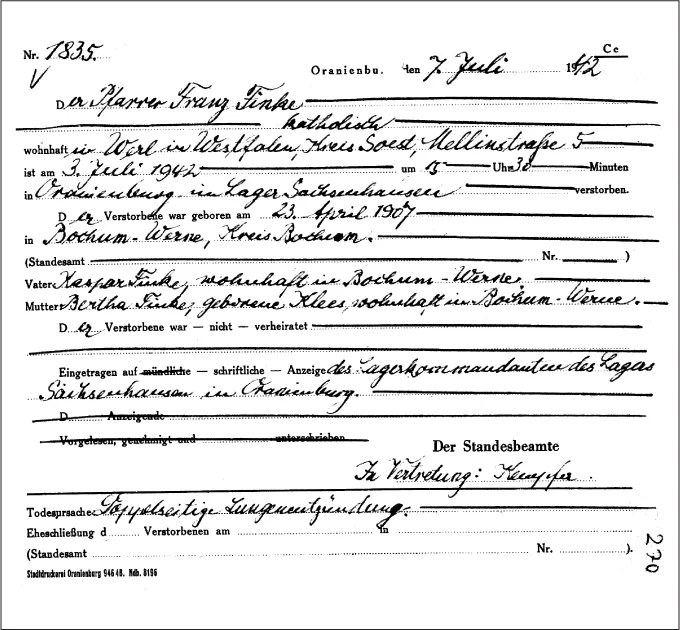 Nr. 1835.
Ce
Oranienbu. den 7. Juli 1942
Der Pfarrer Franz Finke
katholisch
wohnhaft in Werl in Westfalen, Kreis Soest, Mellinstraße 5
ist am 3. Juli 1942 um 15 Uhr 30 Minuten
in Oranienburg im Lager Sachsenhausen verstorben.
Der Verstorbene war geboren am 23. April 1907
in Bochum-Werne, Kreis Bochum.
(Standesamt Nr. )
Vater: Kaspar Finke, wohnhaft in Bochum-Werne.
Mutter: Bertha Finke, geborene Klees, wohnhaft in Bochum-Werne.
Der Verstorbene war — nicht — verheiratet
Eingetragen auf mündliche — schriftliche — Anzeige des Lagerkommandanten des Lagers
Sachsenhausen in Oranienburg.
D Anzeigende
Vorgelesen, genehmigt und unterschrieben
Der Standesbeamte
In Vertretung: Kempfer.
Todesursache: Doppelseitige Lungenentzündung.
Eheschließung d Verstorbenen am in
(Standesamt Nr. ).
270
Stadtdruckerei Oranienburg 946 48. Ndb. 8196